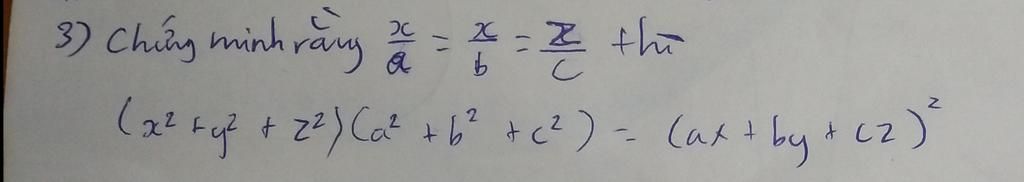 3) Chứng minh rằng x/a = x/b = z/c thì
(x² + y² + z²)(a² + b² + c²) = (ax + by + cz)²